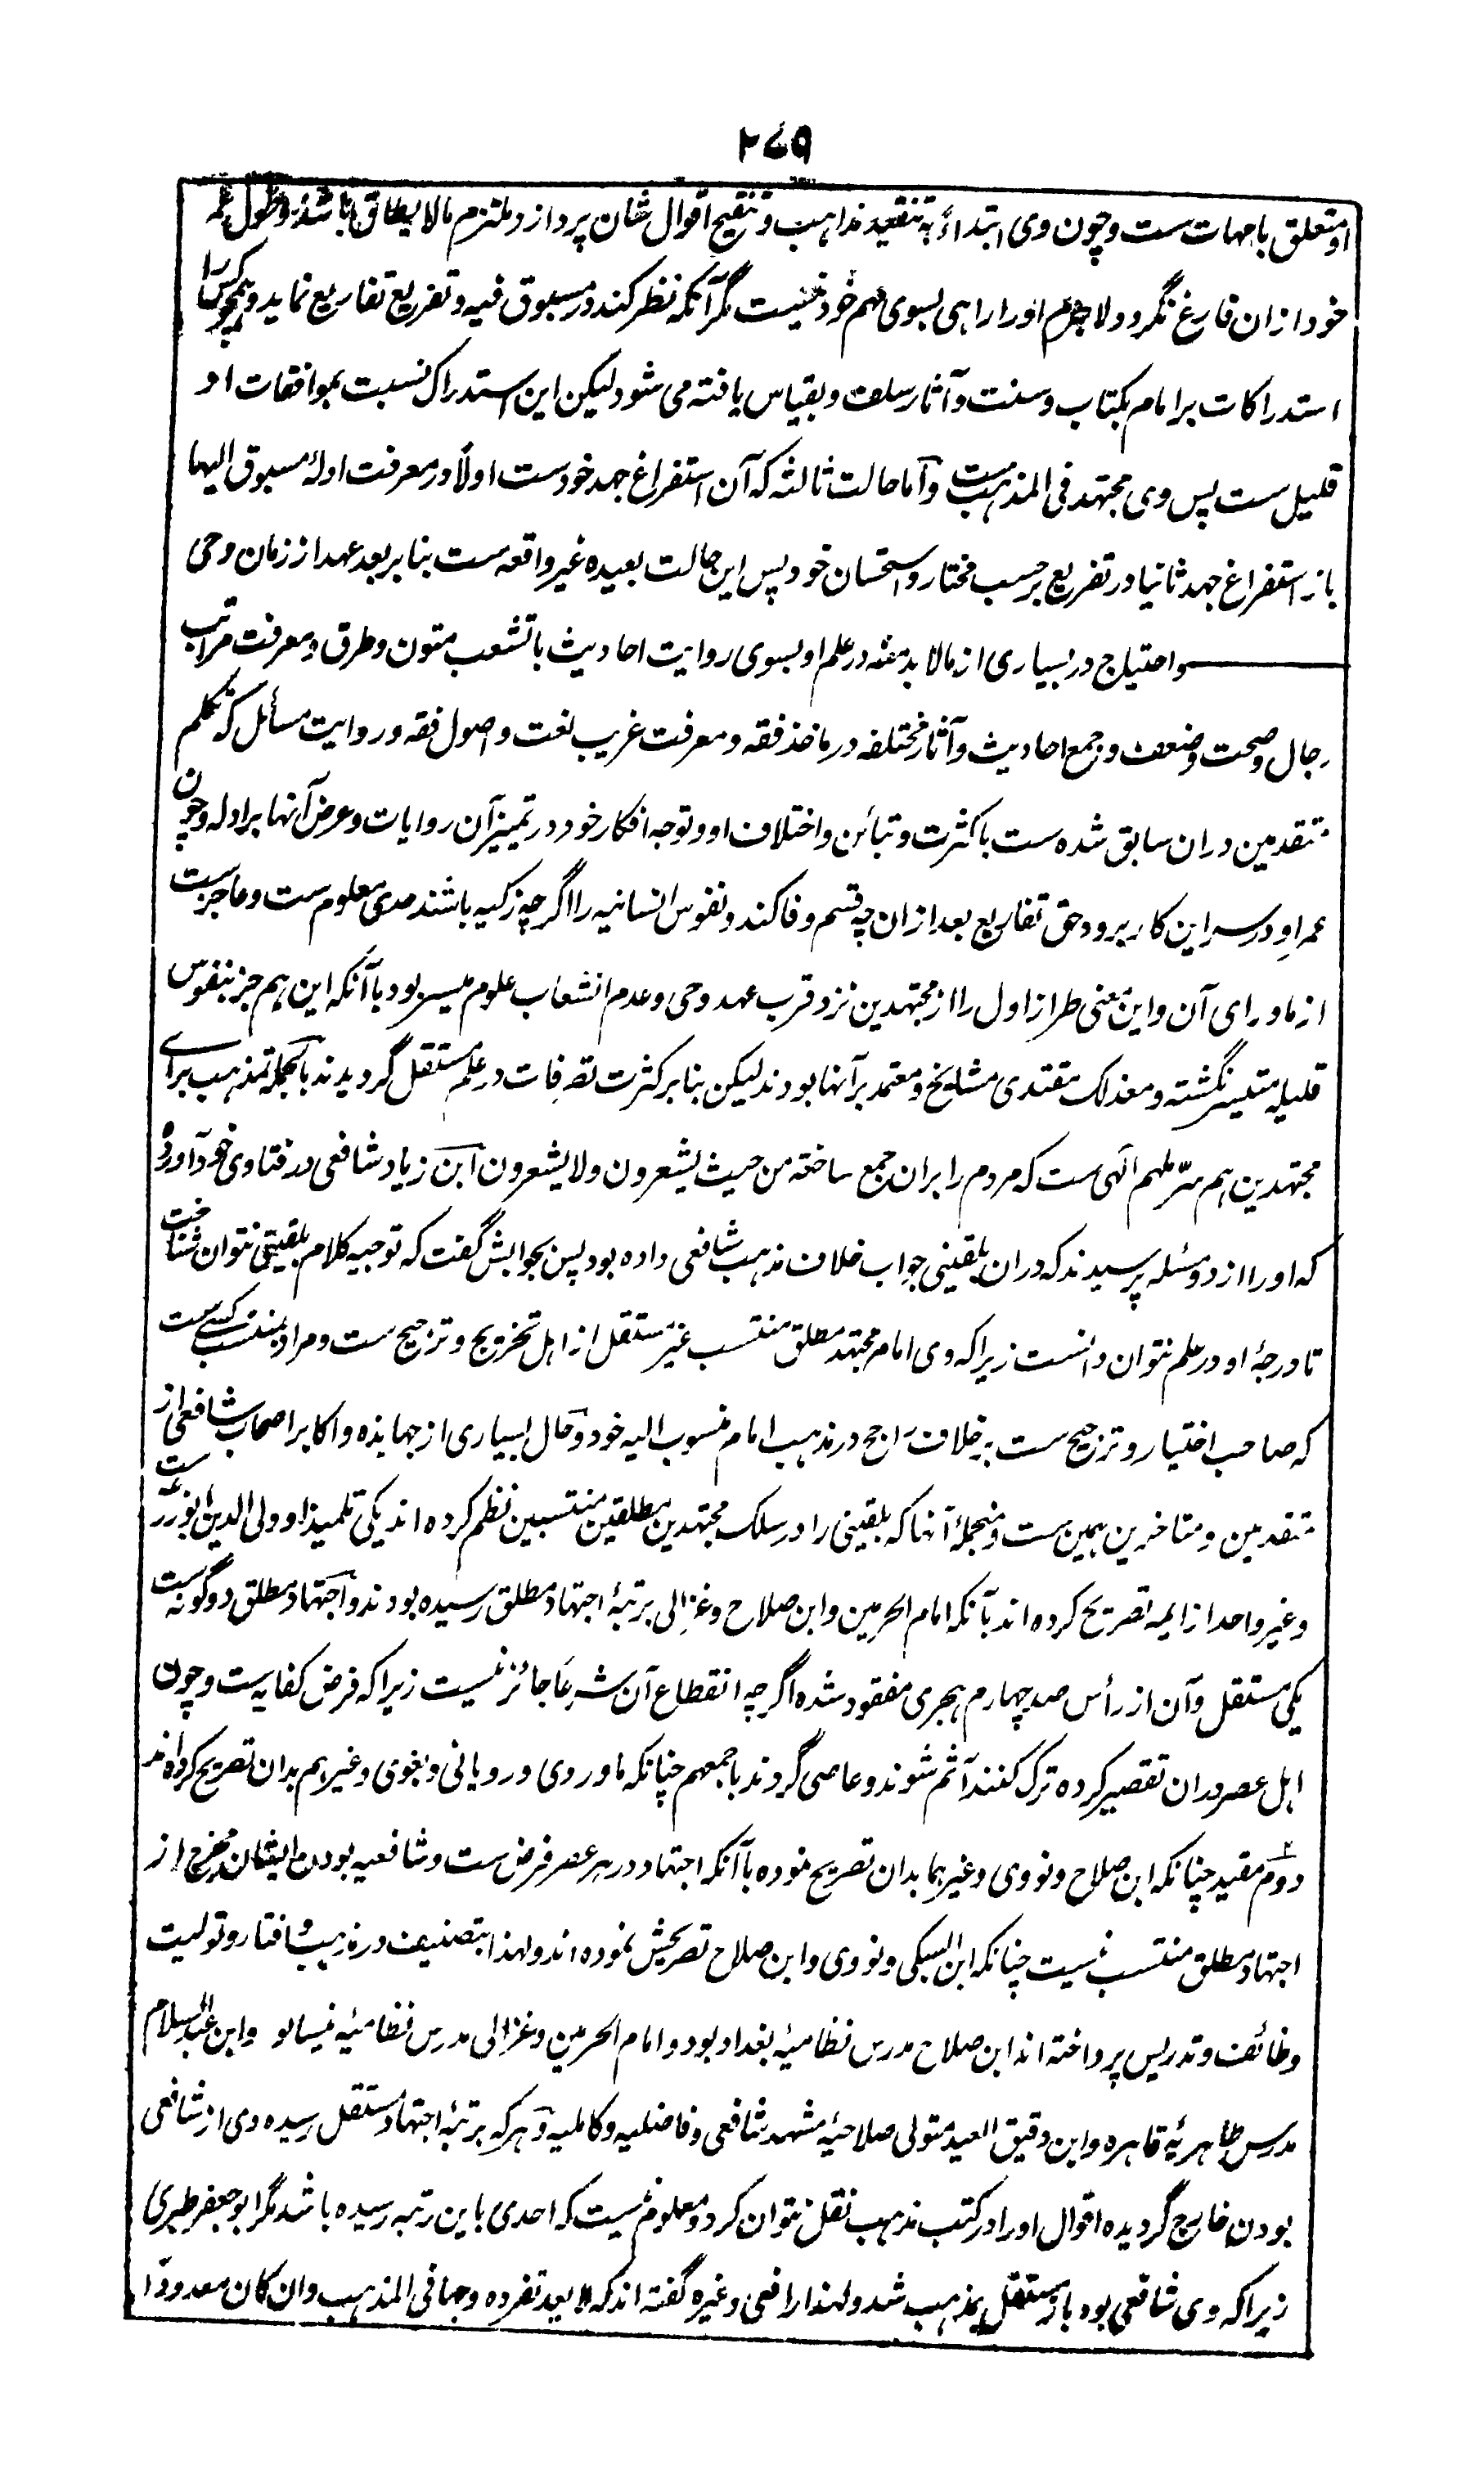 ۲۷۹
او متعلق بامهات ست و چون وی ابتداءً به تنقید مذاهب و تنقیح اقوال شان پردازد ملتزم مالا یطاق باشد و بطول عمر
خود ازان فارغ نگردد ولا جرم او را راهی بسوی مهم خود نیست مگر آنکه نظر کند در مسبوق فیه و تفریع تفاریع نماید و همچو کس را
استدراکات بر امام بکتاب و سنت و آثار سلف و بقیاس یافته می شود لیکن این استدراک نسبت بموافقات او
قلیل ست پس وی مجتهد فی المذهب ست و اما حالت ثالثه که آن استفراغ جهد خودست اولاً در معرفت ادلهٔ مسبوق الیها
باز استفراغ جهد ثانیا در تفریع بر حسب مختار و استحسان خود پس این حالت بعیده غیر واقعه ست بنا بر بعد عهد از زمان وحی
واحتیاج در بسیاری از مالا بد منه در علم او بسوی روایت احادیث با تشعب متون و طرق و معرفت مراتب
رجال و صحت و ضعف و جمع احادیث و آثار مختلفه در ماخذ فقه و معرفت غریب لغت و اصول فقه و روایت مسائل که تکلم
متقدمین دران سابق شده ست با کثرت و تبائن و اختلاف او و توجه افکار خود در تمییز آن روایات و عرض آنها بر ادله و چون
عمر او در سر این کار برود حق تفاریع بعد ازان چه قسم وفا کند و نفوس انسانیه را اگرچه زکیه باشند حدی معلوم ست و عاجز ست
از ماورای آن و این معنی طراز اول را از مجتهدین نزد قرب عهد وحی و عدم انشعاب علوم میسر بود با آنکه این هم جز بنفوس
قلیله متیسر نگشته و معذلک مقتدی مشایخ و معتمد بر آنها بودند لیکن بنا بر کثرت تصرفات در علم مستقل گردیدند بالجمله تمذهب برای
مجتهدین هم سرّ ملهم الهی ست که مردم را بران جمع ساخته من حیث یشعرون ولا یشعرون ابن زیاد شافعی در فتاوی خود آورده
که او را از دو مسئله پرسیدند که دران بلقینی جواب خلاف مذهب شافعی داده بود پس بجوابش گفت که توجیه کلام بلقینی نتوان شناخت
تا درجهٔ او در علم نتوان دانست زیرا که وی امام مجتهد مطلق منتسب غیر مستقل از اهل تخریج و ترجیح ست و مراد بمنتسب کسی ست
که صاحب اختیار و ترجیح ست به خلاف راجح در مذهب امام منسوب الیه خود و حال بسیاری از جهابذه و اکابر اصحاب شافعی از
متقدمین و متاخرین همین ست و منجملهٔ آنها که بلقینی را در سلک مجتهدین مطلقین منتسبین نظم کرده اند یکی تلمیذ او ولی الدین ابو زرعه ست
و غیر واحد از ایمه تصریح کرده اند بآنکه امام الحرمین و ابن صلاح و غزالی برتبهٔ اجتهاد مطلق رسیده بودند و اجتهاد مطلق دو گونه ست
یکی مستقل و آن از رأس صد چهارم هجری مفقود شده اگرچه انقطاع آن شرعاً جائز نیست زیرا که فرض کفایه ست و چون
اهل عصر دران تقصیر کرده ترک کنند آثم شوند و عاصی گردند باجمعهم چنانکه ماوردی و رویانی و بغوی و غیرهم بدان تصریح کرده اند
دوم مقید چنانکه ابن صلاح و نووی و غیرهما بدان تصریح نموده با آنکه اجتهاد در هر عصر فرض ست و شافعیه بودن ایشان مخرج از
اجتهاد مطلق منتسب نیست چنانکه ابن السبکی و نووی و ابن صلاح تصریحش نموده اند ولهذا بتصنیف در مذهب و افتا و تولیت
وظائف و تدریس پرداخته اند ابن صلاح مدرس نظامیهٔ بغداد بود و امام الحرمین و غزالی مدرس نظامیهٔ نیسابو وابن عبد السلام
مدرس ظاهریهٔ قاهره و ابن دقیق العید متولی صلاحیهٔ مشهد شافعی و فاضلیه و کاملیه و هر که برتبهٔ اجتهاد مستقل رسیده وی از شافعی
بودن خارج گردیده اقوال او را در کتب مذهب نقل نتوان کرد و معلوم نیست که احدی باین رتبه رسیده باشد مگر ابو جعفر طبری
زیرا که وی شافعی بود باز مستقل بمذهب شد ولهذا رافعی و غیره گفته اند که لا یعد تفرده وجها فی المذهب وان کان معدودًا